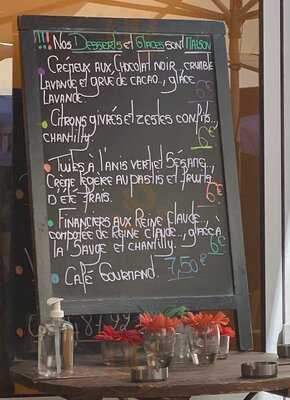 !!! Nos Desserts et Glaces sont Maison
Crémeux aux Chocolat noir, crumble
Lavande et grue de cacao.., glace
Lavande.
Citrons givrés et zestes confits..,
chantilly. 6€
Tuiles à l'anis vert et Sésame.,
Crème légère au pastis et fruits
d'été frais. 6€
Financiers aux Reine Claude..,
compotée de Reine Claude.., glace à
la Sauge et chantilly. 6€
Café Gourmand. 7,50€